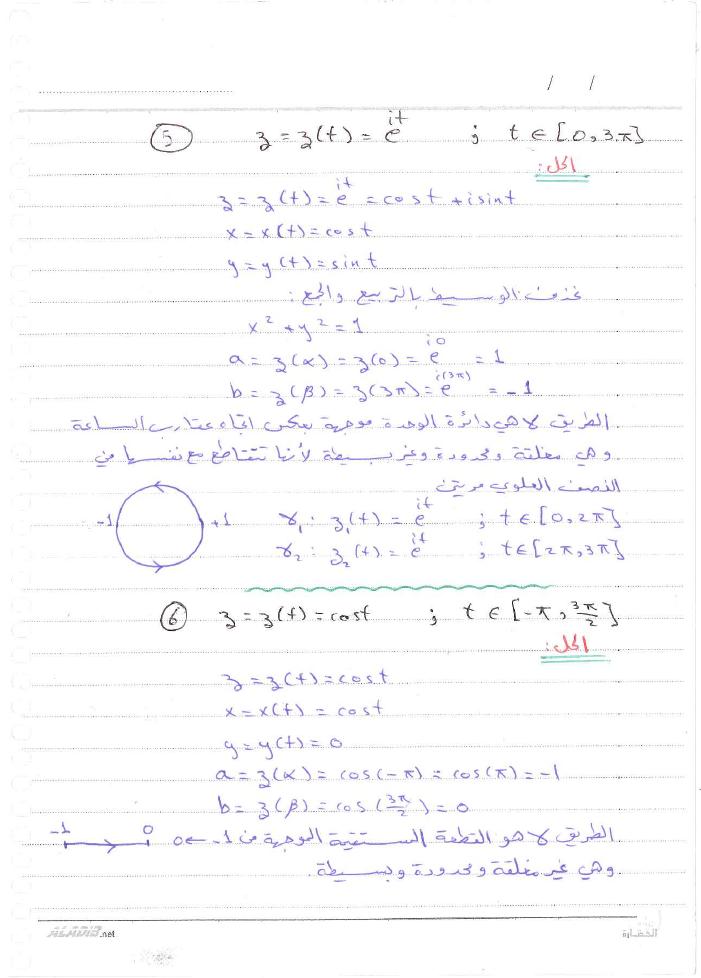 / /
⑤ z = z(t) = e^{it} ; t ∈ [0, 3π]
الحل:
z = z(t) = e^{it} = cos t + i sin t
x = x(t) = cos t
y = y(t) = sin t
نحذف الوسيط بالتربيع والجمع :
x² + y² = 1
a = z(α) = z(0) = e^{i0} = 1
b = z(β) = z(3π) = e^{i(3π)} = -1
الطريق γ هي دائرة الوحدة موجهة بعكس اتجاه عقارب الساعة
وهي مغلقة ومحدودة وغير بسيطة لأنها تتقاطع مع نفسها في
النصف العلوي مرتين
-1 +1 γ₁ : z₁(t) = e^{it} ; t ∈ [0, 2π]
γ₂ : z₂(t) = e^{it} ; t ∈ [2π, 3π]
⑥ z = z(t) = cos t ; t ∈ [-π, 3π/2]
الحل:
z = z(t) = cos t
x = x(t) = cos t
y = y(t) = 0
a = z(α) = cos(-π) = cos(π) = -1
b = z(β) = cos(3π/2) = 0
الطريق γ هو القطعة المستقيمة الموجهة من -1 → 0
-1 0
وهي غير مغلقة ومحدودة وبسيطة.
ALADIB.net
الحضارة